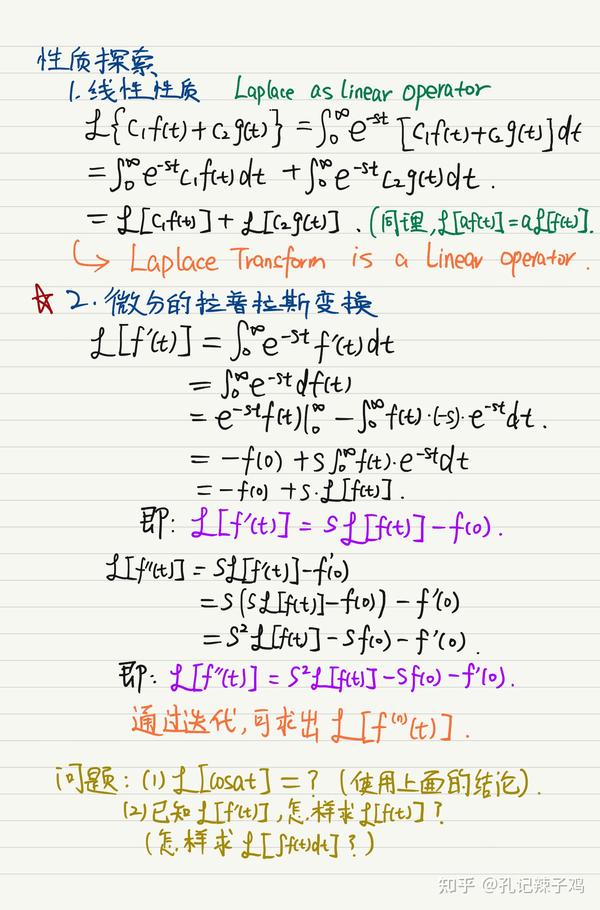 性质探索
1. 线性性质 Laplace as linear operator
ℒ{c₁f(t)+c₂g(t)} = ∫₀^∞ e^{-st} [c₁f(t)+c₂g(t)]dt
= ∫₀^∞ e^{-st}c₁f(t)dt + ∫₀^∞ e^{-st}c₂g(t)dt.
= ℒ[c₁f(t)] + ℒ[c₂g(t)]. (同理, ℒ[af(t)]=aℒ[f(t)].
↳ Laplace Transform is a Linear operator.
☆ 2. 微分的拉普拉斯变换
ℒ[f'(t)] = ∫₀^∞ e^{-st} f'(t)dt
= ∫₀^∞ e^{-st} df(t)
= e^{-st}f(t)|₀^∞ - ∫₀^∞ f(t)·(-s)·e^{-st}dt.
= -f(0) + s∫₀^∞ f(t)·e^{-st}dt
= -f(0) + s·ℒ[f(t)].
即: ℒ[f'(t)] = sℒ[f(t)]-f(0).
ℒ[f''(t)] = sℒ[f'(t)]-f'(0)
= s(sℒ[f(t)]-f(0)) - f'(0)
= s²ℒ[f(t)]-sf(0)-f'(0).
即: ℒ[f''(t)] = s²ℒ[f(t)]-sf(0)-f'(0).
通过迭代,可求出 ℒ[f⁽ⁿ⁾(t)].
问题: (1) ℒ[cosat]=? (使用上面的结论).
(2) 已知ℒ[f'(t)], 怎样求ℒ[f(t)]?
(怎样求ℒ[∫f(t)dt]?)
知乎 @孔记辣子鸡